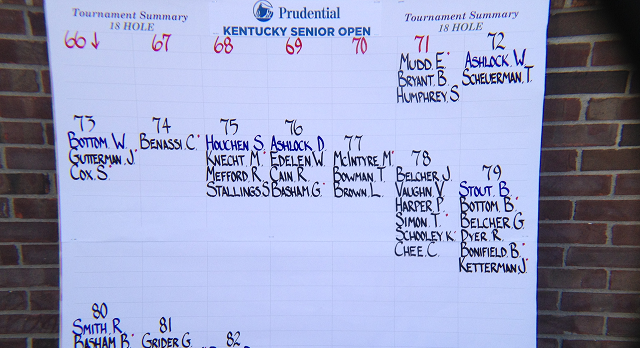 Tournament Summary
18 HOLE
Prudential
KENTUCKY SENIOR OPEN
Tournament Summary
18 HOLE
66↓ 67 68 69 70 71 72
MUDD. E.
BRYANT. B.
HUMPHREY. S
ASHLOCK. W
SCHEUERMAN. T.
73 74 75 76 77 78 79
BOTTOM. W.
GUTTERMAN. J.
COX. S.
BENASSI. C.
HOUCHEN. S.
KNECHT. M.
MEFFORD. R.
STALLINGS. S
ASHLOCK. D.
EDELEN. W.
CAIN. R.
BASHAM. G.
MCINTYRE. M.
BOWMAN. T.
BROWN. L.
BELCHER. J.
VAUGHN. V.
HARPER. P.
SIMON. T.
SCHOOLEY. K.
CHEE. C.
STOUT. B.
BOTTOM. B.
BELCHER. G.
DYER. R.
BONIFIELD. B.
KETTERMAN. J.
80 81 82
SMITH. R.
BASHAM. B.
GRIDER. G.